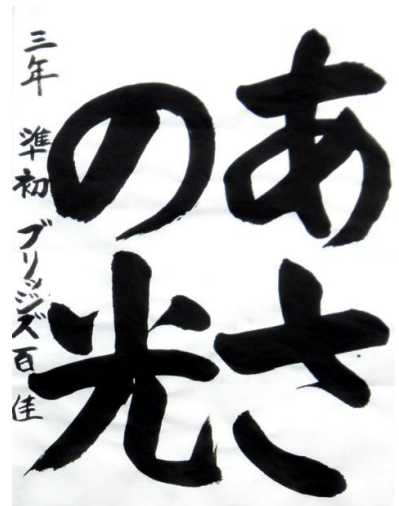 あさ
の光
三年 準初 ブリッジズ百佳